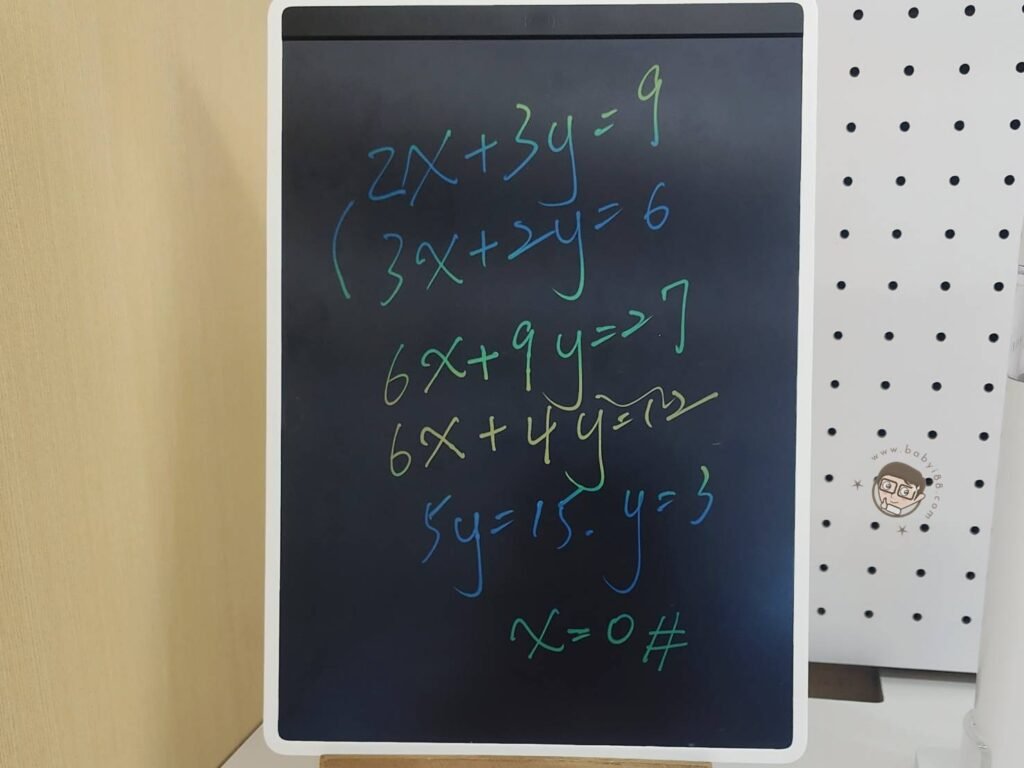 2x+3y=9
3x+2y=6
6x+9y=27
6x+4y=12
5y=15. y=3
x=0 #
www.babyi88.com